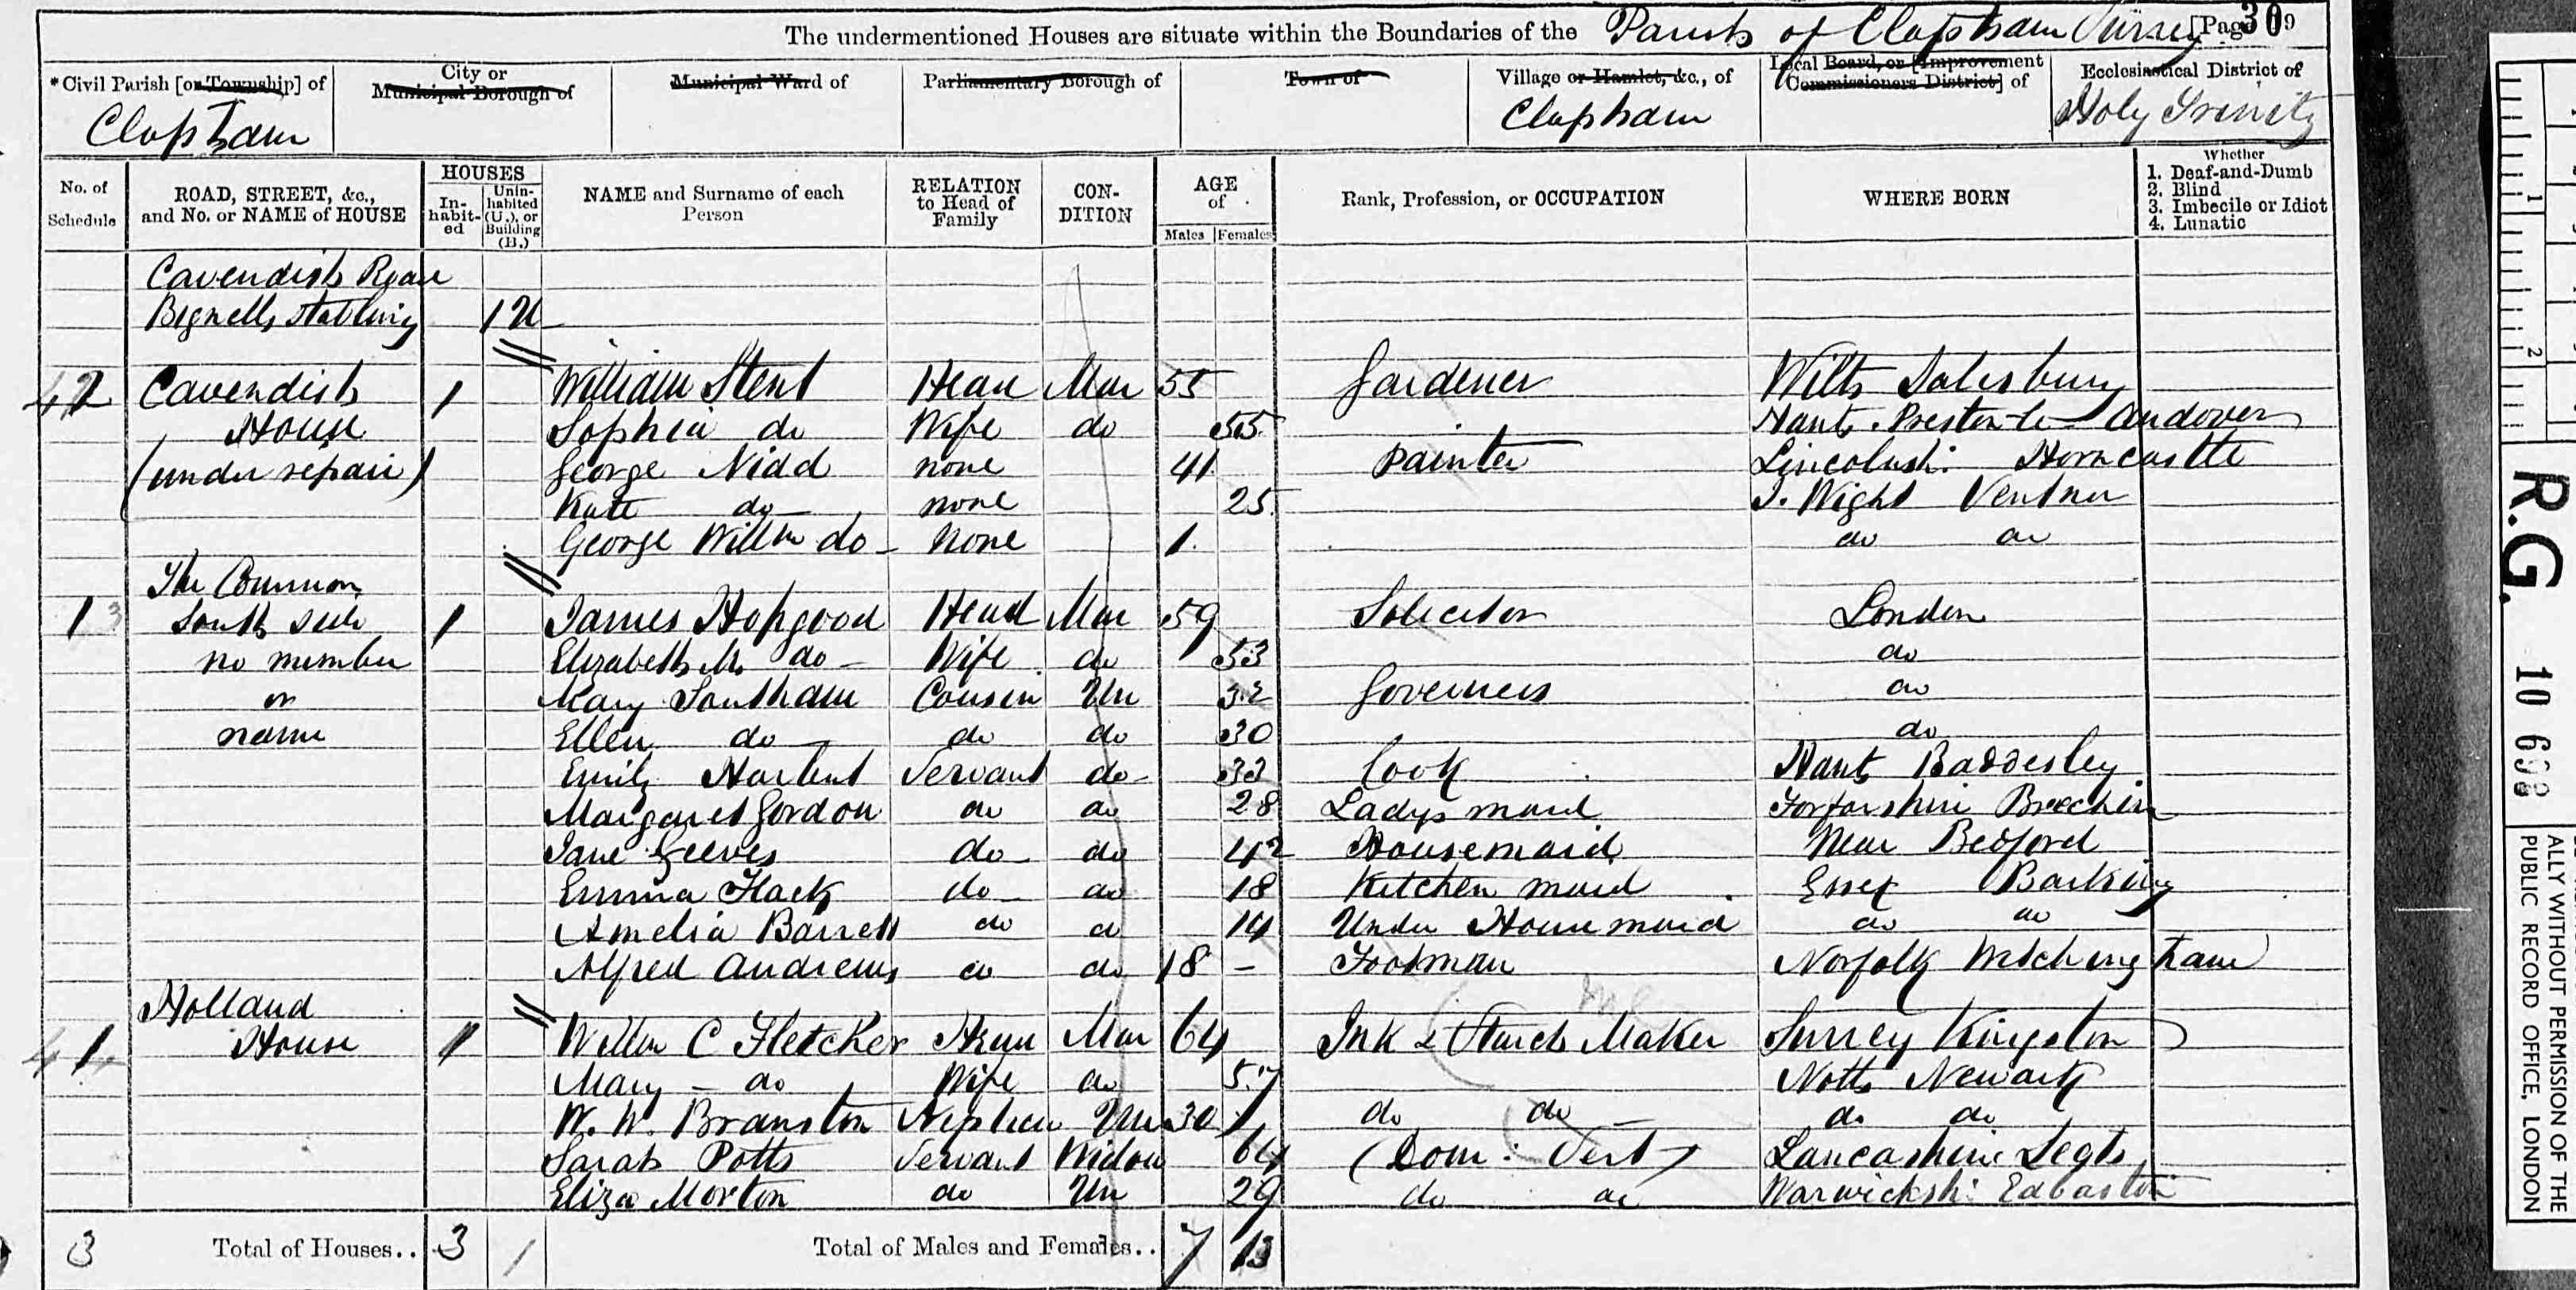 The undermentioned Houses are situate within the Boundaries of the Parish of Clapham Surrey [Page 309
*Civil Parish [or Township] of
Clapham
City or
Municipal Borough of
Municipal Ward of
Parliamentary Borough of
Town of
Village or Hamlet, &c., of
Clapham
Local Board, or [Improvement
Commissioners District] of
Ecclesiastical District of
Holy Trinity
No. of
Schedule
ROAD, STREET, &c.,
and No. or NAME of HOUSE
HOUSES
In-
habit-
ed
Unin-
habited
(U.), or
Building
(B.)
NAME and Surname of each
Person
RELATION
to Head of
Family
CON-
DITION
AGE
of
Males Females
Rank, Profession, or OCCUPATION
WHERE BORN
Whether
1. Deaf-and-Dumb
2. Blind
3. Imbecile or Idiot
4. Lunatic
Cavendish Road
Bignells Stabling 1 U
42 Cavendish 1 William Stent Head Mar 55 Gardener Wilts Salisbury
House Sophia do Wife do 55 Hants Preston Andover
(under repair) George Nidd none 41 Painter Lincolnsh: Horncastle
Kate do none 25 I. Wight Ventnor
George Willm do none 1 do do
The Common
1 South side 1 James Hopgood Head Mar 59 Solicitor London
no number Elizabeth M. do Wife do 53 do
or Mary Southam Cousin Un 32 Governess do
name Ellen do do do 30 do
Emily Servant do 33 Cook Hants Baddesley
Margaret Gordon do do 28 Ladys maid Forfarshire Brechin
Jane Geeves do do 42 Housemaid Near Bedford
Emma Flack do do 18 Kitchen maid Essex Barking
Amelia Barrett do do 19 Under Housemaid do do
Alfred Andrews do do 18 – Footman Norfolk Witchingham
Holland
41 House 1 Willm C Fletcher Head Mar 64 Ink & Starch Maker Surrey Kingston
Mary do Wife do 57 Notts Newark
W. W. Branston Nephew Un 30 do do do do
Sarah Potts Servant Widow 64 (Dom: Servt) Lancashire
Eliza Morton do Un 29 do do Warwicksh: Edbaston
3 Total of Houses.. 3 1 Total of Males and Females.. 7 13
1
2
R.G. 10
ALLY WITHOUT PERMISSION OF THE
PUBLIC RECORD OFFICE, LONDON